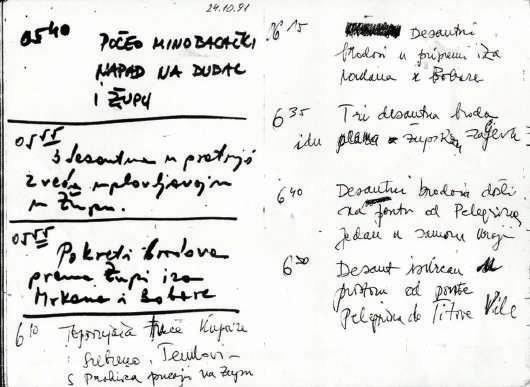 24.10.91
05 40 POČEO MINOBACAČKI
NAPAD NA DUBAC
I ŽUPU
05 55
3 desantna u pratnji
2 veća uplovljavaju
u Župu.
05 55
Pokreti brodova
prema Župi iza
Mrkana i Bobare
6 10
Srebreno
na Župu
6 15 Desantni
brodovi u pripremi iza
Mrkana i Bobare
6 35 Tri desantna broda
idu Župskom
6 40 Desantni brodovi došli
na od Pelegrina,
jedan u samoj uvali
6 50 Desant izvršen
prostoru od
Pelegrina do Titove Vile